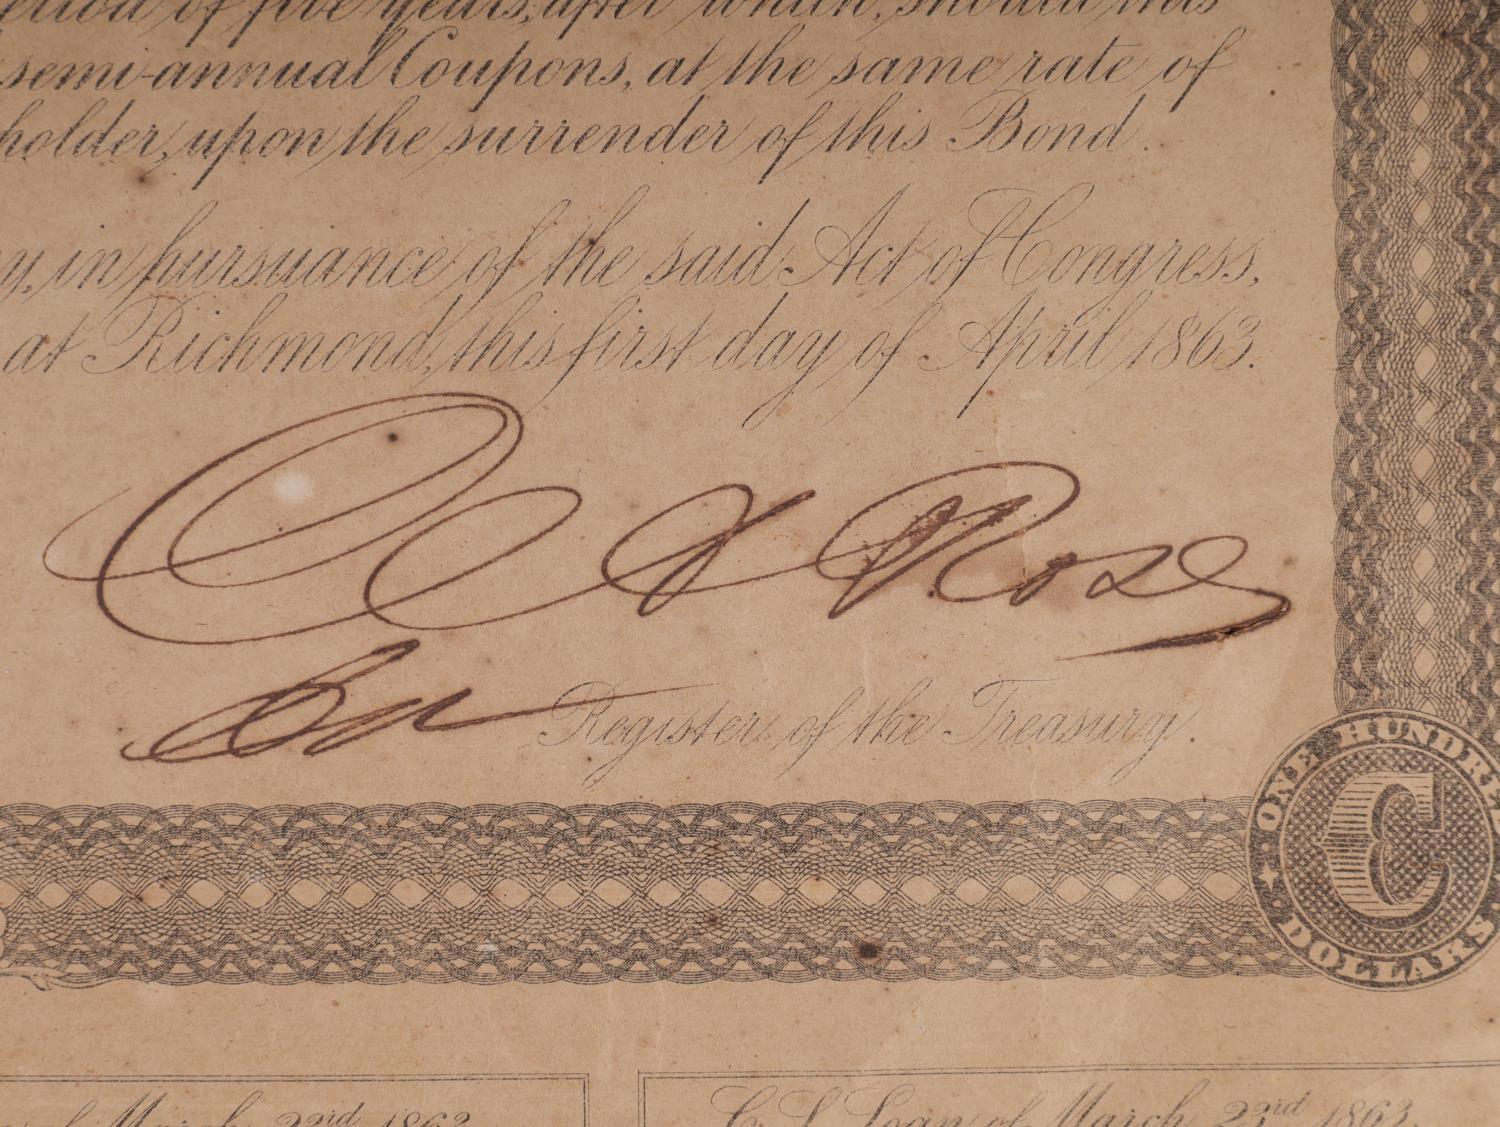 period of five years, after which, should this
semi-annual Coupons, at the same rate of
holder, upon the surrender of this Bond.
y, in pursuance of the said Act of Congress,
at Richmond, this first day of April 1863.
Rose
Register of the Treasury.
ONE HUNDRED
C
DOLLARS
March 23rd 1863
C. S. Loan of March 23rd 1863